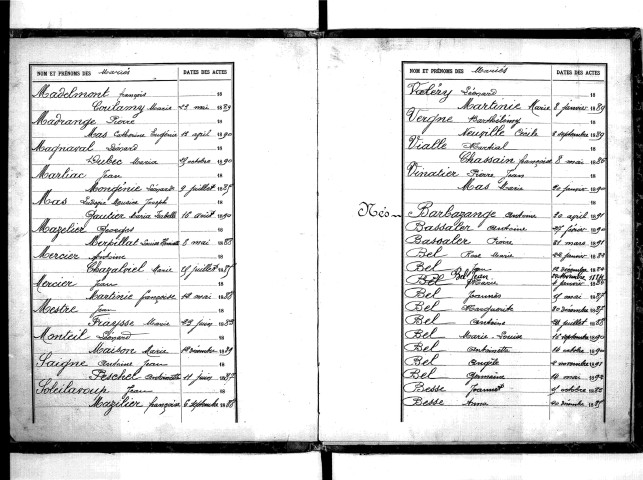 NOM ET PRÉNOMS DES Mariés DATES DES ACTES
Madelmont françois 18
Coulamy Marie 23 mai 1889
Madrange Pierre 18
Mas Catherine Euphénie 12 avril 1890
Magnaval Léonard 18
Dubec Maria 27 octobre 1890
Marliac Jean 18
Mongénie Léonarde 9 juillet 1887
Mas Joseph 18
Gautier Maria Isabelle 16 août 1890
Mazelier Georges 18
Merpillat Louise 8 mai 1888
Mercier Antoine 18
Chazalviel Marie juillet 1887
Mercier Jean 18
Martinie françoise mai 1888
Mestre Jean 18
Fraysse Marie 23 juin 1883
Monteil Léonard 18
Maison Marie décembre 1889
Saigne Antoine Jean 18
Peschel Antoinette 11 juin 1887
Soleilavoup Jean 18
Mazilier françoise 6 septembre 1888
NOM ET PRÉNOMS DES Mariés DATES DES ACTES
Valéry Léonard 18
Martinie Marie 8 janvier 1889
Vergne Barthélemy 18
Neuville Cécile 8 septembre 1889
Vialle Martial 18
Chassain françoise 8 mai 1886
Vinatier Pierre Jean 18
Mas Marie 20 janvier 1890
Nés
Barbazange Antoine 20 avril 1891
Bassaler Antoine 25 février 1890
Bassaler Pierre 31 mars 1891
Bel Rose Marie 22 janvier 1884
Bel Jean 12 décembre 1884
Bel Jean novembre
Bel Marie 4 janvier 1886
Bel Jeannés mai 1887
Bel Marguerite 20 décembre 1887
Bel Antoine 28 juillet 1888
Bel Marie Louise 16 septembre 1890
Bel Antoinette 14 octobre 1890
Bel Angèle 2 novembre 1891
Bel Germaine 14 mai 1892
Besse Jeanne octobre 1882
Besse Anna 20 décembre 1887